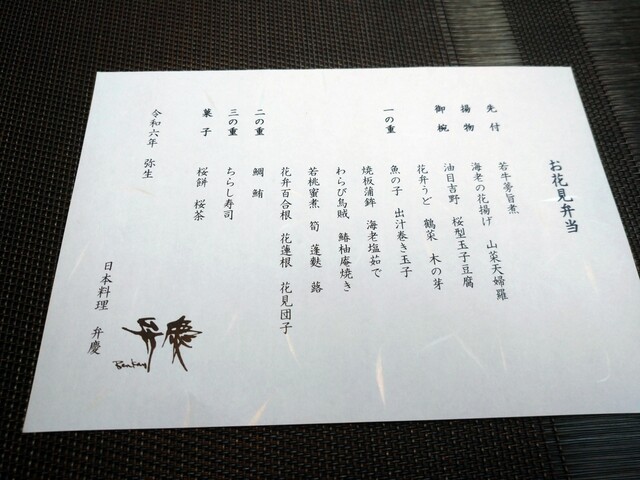 お花見弁当
先付 若牛蒡旨煮
揚物 海老の花揚げ 山菜天婦羅
御椀 油目吉野 桜型玉子豆腐
花弁うど 鶴菜 木の芽
一の重 魚の子 出汁巻き玉子
焼板蒲鉾 海老塩茹で
わらび烏賊 鰆柚庵焼き
若桃蜜煮 筍 蓬麩 蕗
花弁百合根 花蓮根 花見団子
二の重 鯛 鮪
三の重 ちらし寿司
菓子 桜餅 桜茶
令和六年 弥生
日本料理 弁慶
弁慶
Benkey